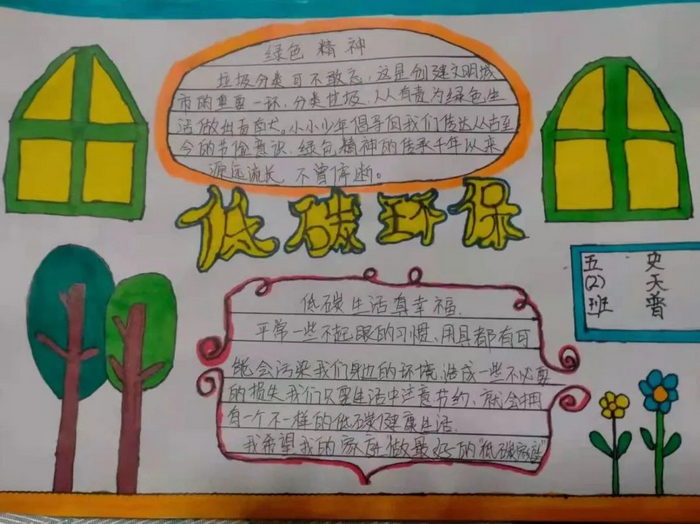 绿色精神
垃圾分类可不敢忘,这是创建文明城
市的重要一环,分类垃圾,人人有责为绿色生
活做出贡献。小小少年倡导同我们传达从古至
今的节俭意识,绿色精神的传承千年以来
源远流长 不曾停断。
低碳环保
五(2)班
史天普
低碳生活真幸福.
平常一些不起眼的习惯、用具都有可
能会污染我们身边的环境,造成一些不必要
的损失,我们只要生活中注意节约,就会拥
有一个不一样的低碳健康生活.
我希望我的家庭做最好的"低碳家庭"